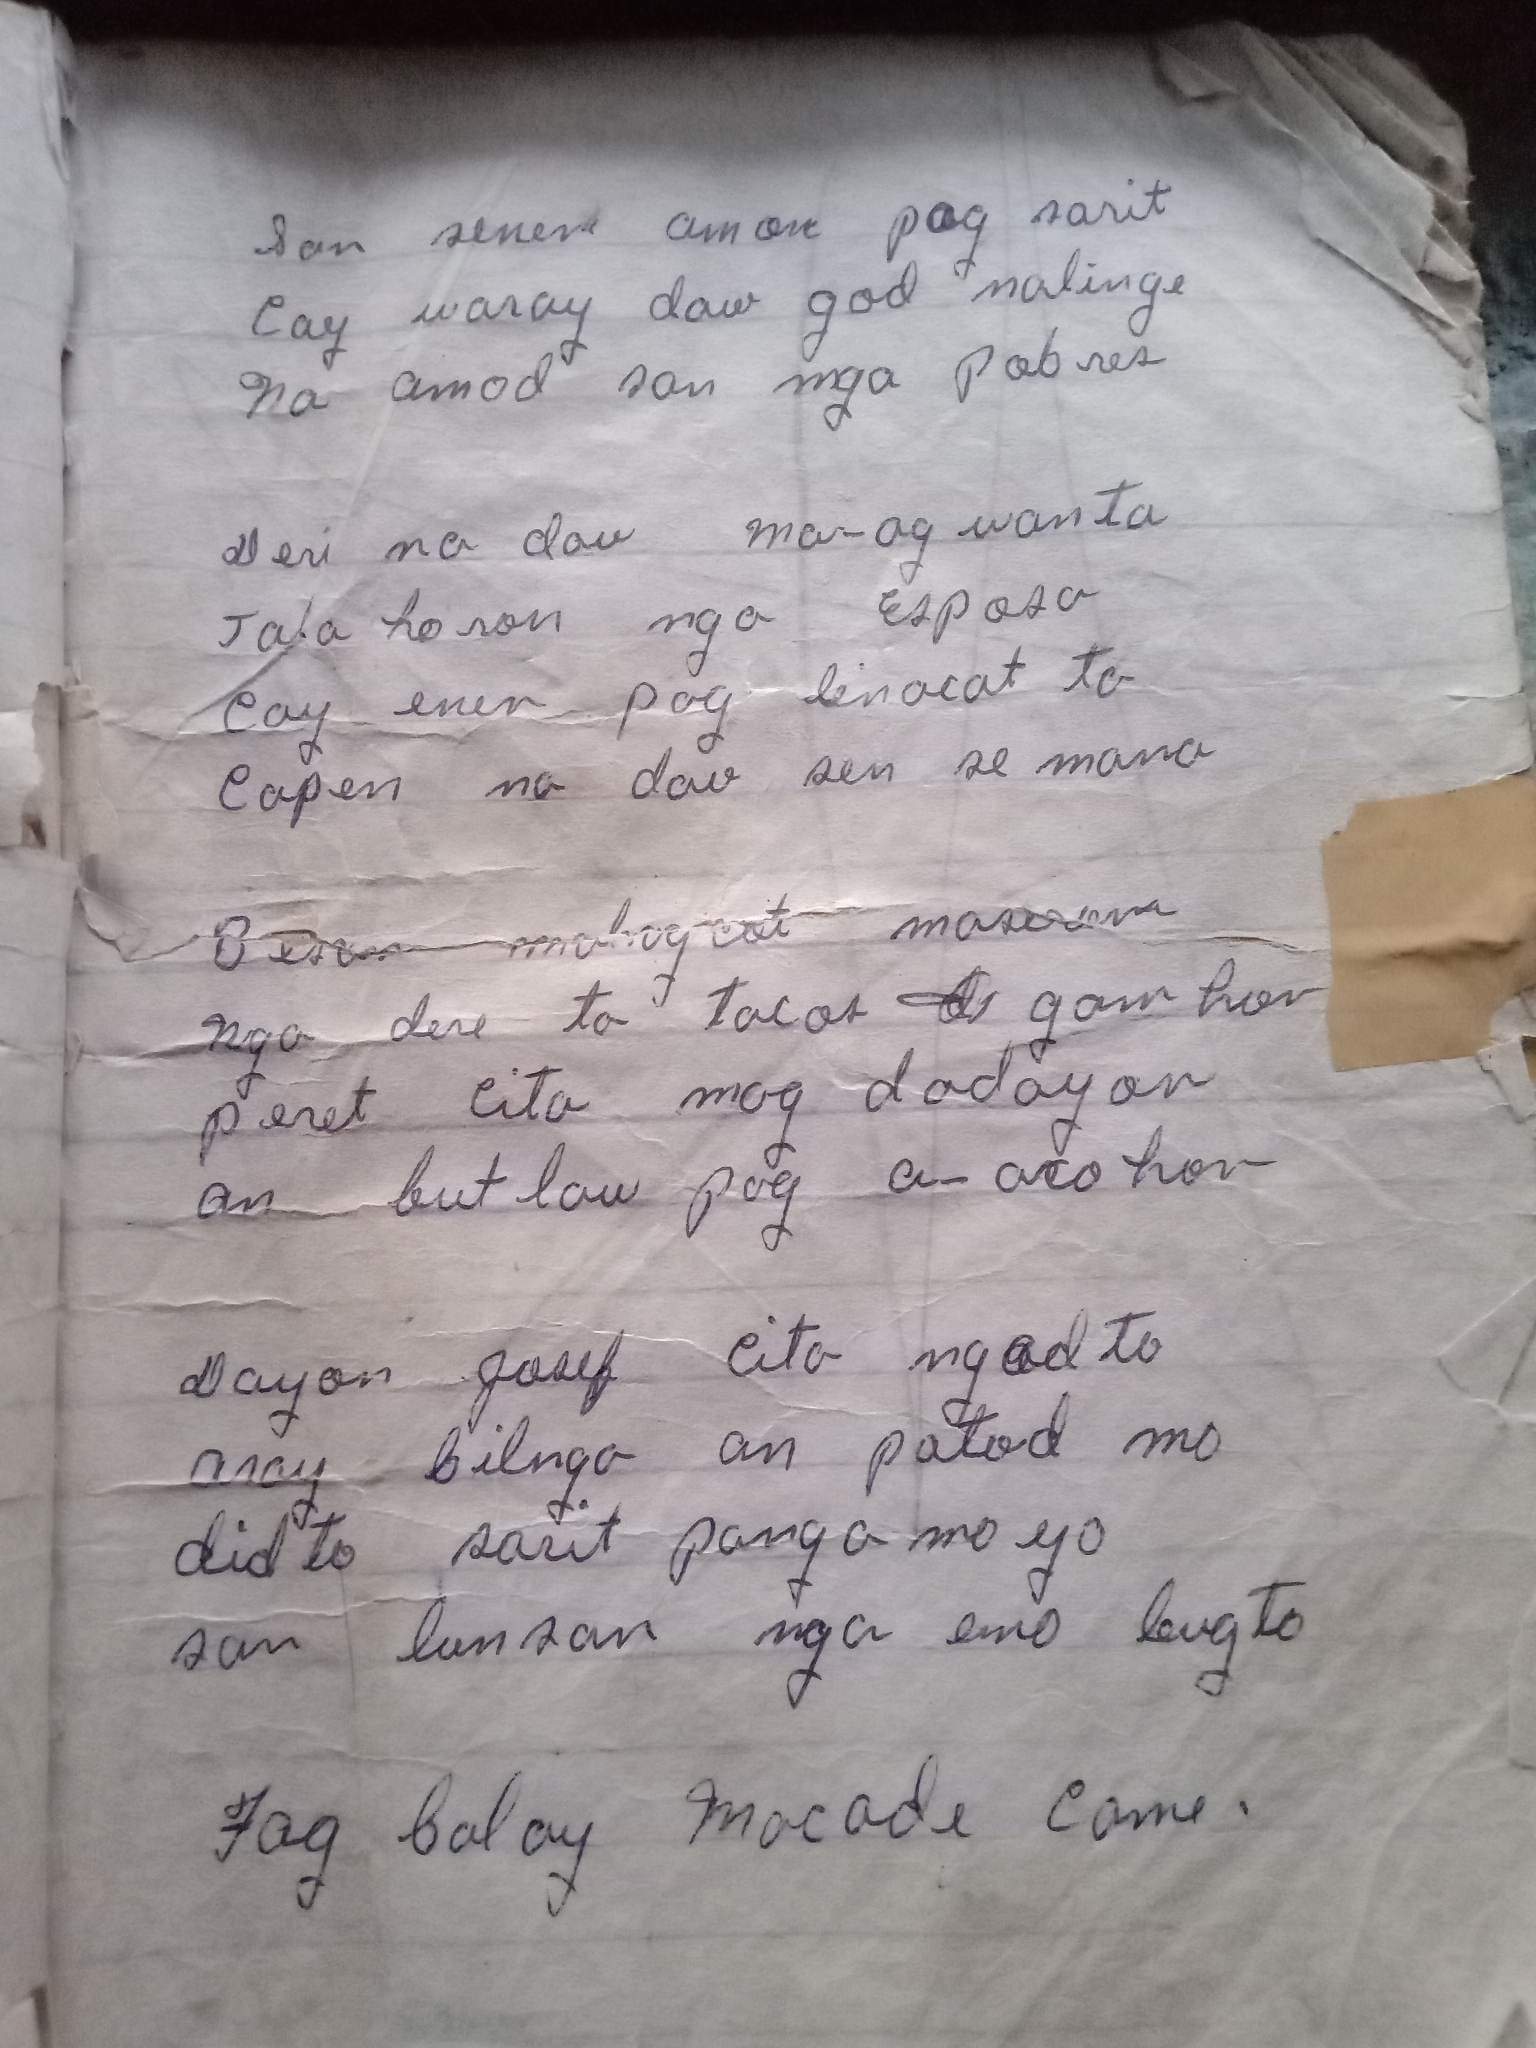 San senen amon pag sarit
Cay waray daw god nalinge
Na amod san mga Pobres
Deri na daw ma-ag wanta
Tala horon nga Esposa
Cay enen pag linacat ta
Capen na daw sen se mana
Besan mahagcot maserom
nga dere ta tacos gamhon
peret cita mag dadayon
an but law pag a-acohon
Dayon Josef cita ngadto
aray bilnga an patod mo
didto sarit panga mo yo
san lunsan nga emo bugto
Tag balay Macade Came.